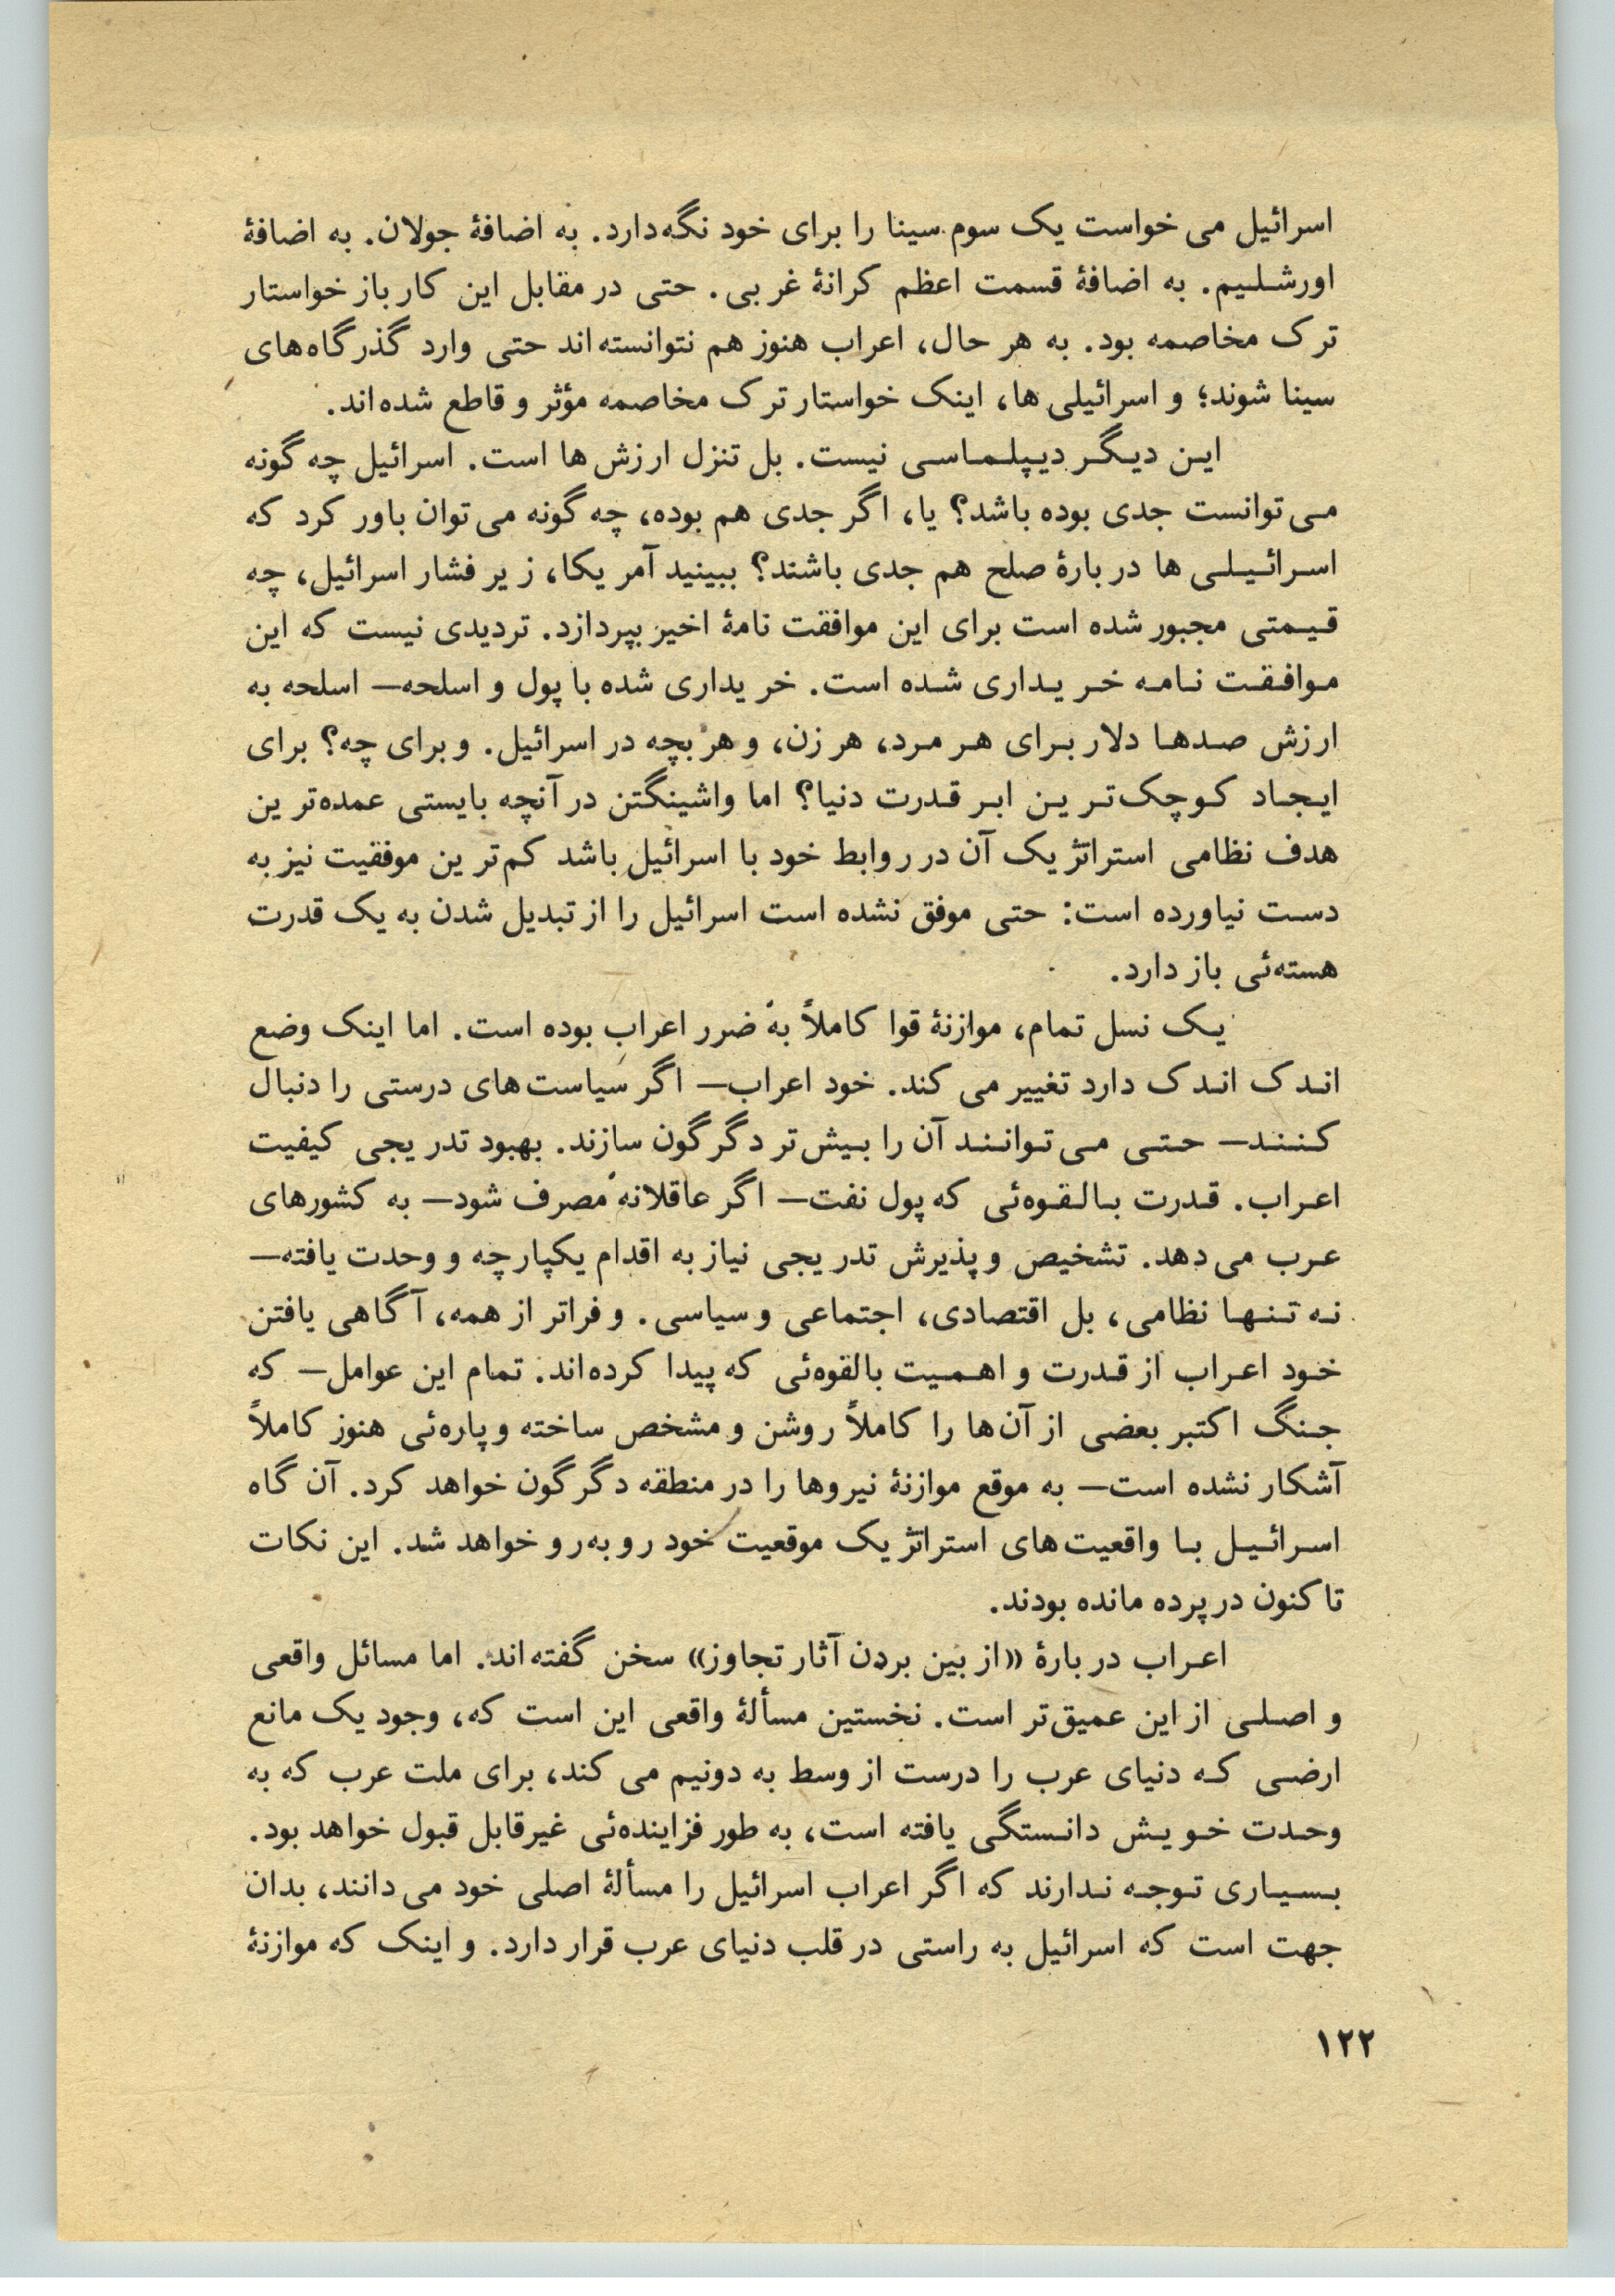 اسرائیل می خواست یک سوم سینا را برای خود نگه‌دارد. به اضافهٔ جولان. به اضافهٔ
اورشلیم. به اضافهٔ قسمت اعظم کرانهٔ غربی. حتی در مقابل این کار باز خواستار
ترک مخاصمه بود. به هر حال، اعراب هنوز هم نتوانسته‌اند حتی وارد گذرگاه‌های
سینا شوند؛ و اسرائیلی‌ها، اینک خواستار ترک مخاصمه مؤثر و قاطع شده‌اند.
این دیگر دیپلماسی نیست. بل تنزل ارزش‌ها است. اسرائیل چه گونه
می‌توانست جدی بوده باشد؟ یا، اگر جدی هم بوده، چه گونه می‌توان باور کرد که
اسرائیلی‌ها دربارهٔ صلح هم جدی باشند؟ ببینید آمریکا، زیر فشار اسرائیل، چه
قیمتی مجبور شده است برای این موافقت نامهٔ اخیر بپردازد. تردیدی نیست که این
موافقت نامه خریداری شده است. خریداری شده با پول و اسلحه— اسلحه به
ارزش صدها دلار برای هر مرد، هر زن، و هر بچه در اسرائیل. و برای چه؟ برای
ایجاد کوچک‌ترین ابر قدرت دنیا؟ اما واشینگتن در آنچه بایستی عمده‌ترین
هدف نظامی استراتژیک آن در روابط خود با اسرائیل باشد کم‌ترین موفقیت نیز به
دست نیاورده است: حتی موفق نشده است اسرائیل را از تبدیل شدن به یک قدرت
هسته‌ئی باز دارد.
یک نسل تمام، موازنهٔ قوا کاملاً به ضرر اعراب بوده است. اما اینک وضع
اندک اندک دارد تغییر می کند. خود اعراب— اگر سیاست‌های درستی را دنبال
کنند— حتی می‌توانند آن را بیش‌تر دگرگون سازند. بهبود تدریجی کیفیت
اعراب. قدرت بالقوه‌ئی که پول نفت— اگر عاقلانه مصرف شود— به کشورهای
عرب می دهد. تشخیص و پذیرش تدریجی نیاز به اقدام یکپارچه و وحدت یافته—
نه تنها نظامی، بل اقتصادی، اجتماعی و سیاسی. و فراتر از همه، آگاهی یافتن
خود اعراب از قدرت و اهمیت بالقوه‌ئی که پیدا کرده‌اند. تمام این عوامل— که
جنگ اکتبر بعضی از آن‌ها را کاملاً روشن و مشخص ساخته و پاره‌ئی هنوز کاملاً
آشکار نشده است— به موقع موازنهٔ نیروها را در منطقه دگرگون خواهد کرد. آن گاه
اسرائیل با واقعیت‌های استراتژیک موقعیت خود روبه‌رو خواهد شد. این نکات
تاکنون در پرده مانده بودند.
اعراب دربارهٔ «از بین بردن آثار تجاوز» سخن گفته‌اند. اما مسائل واقعی
و اصلی از این عمیق‌تر است. نخستین مسألهٔ واقعی این است که، وجود یک مانع
ارضی که دنیای عرب را درست از وسط به دونیم می کند، برای ملت عرب که به
وحدت خویش دانستگی یافته است، به طور فزاینده‌ئی غیرقابل قبول خواهد بود.
بسیاری توجه ندارند که اگر اعراب اسرائیل را مسألهٔ اصلی خود می‌دانند، بدان
جهت است که اسرائیل به راستی در قلب دنیای عرب قرار دارد. و اینک که موازنهٔ
۱۲۲